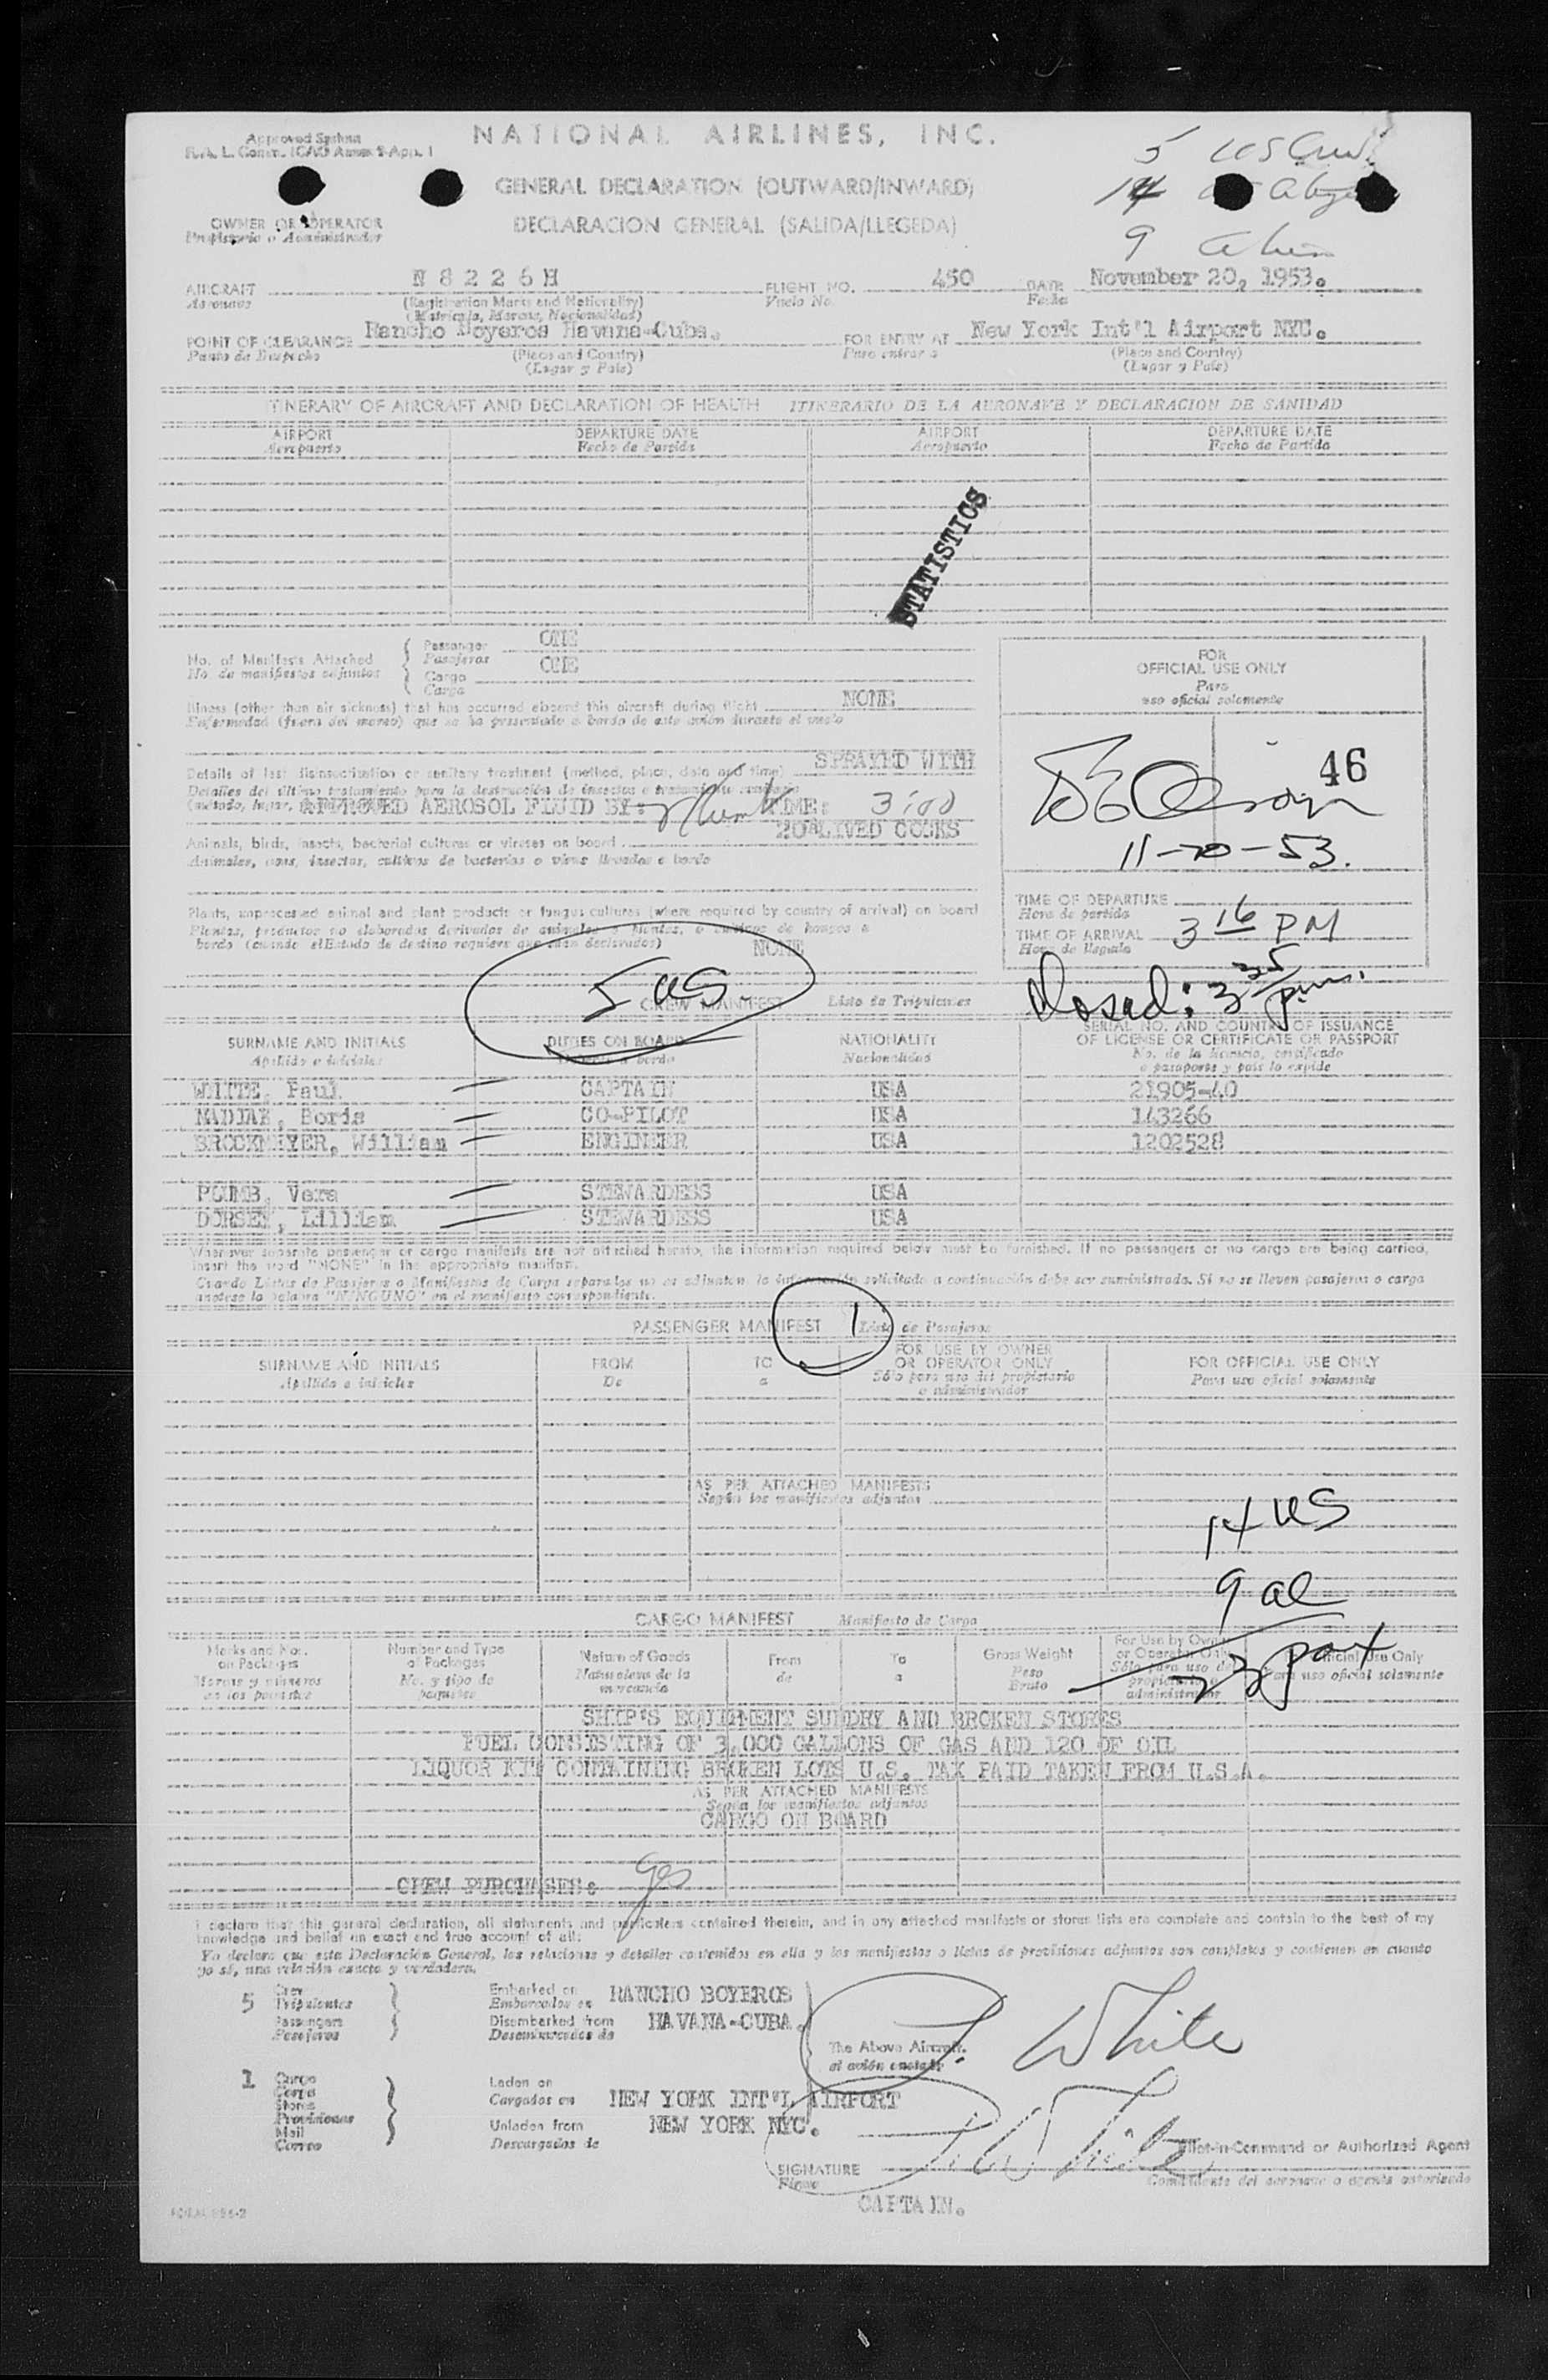 NATIONAL AIRLINES, INC.
Approved System
R.A.L. Comm. ICAO Annex 9-App. 1
GENERAL DECLARATION (OUTWARD/INWARD)
DECLARACION GENERAL (SALIDA/LLEGEDA)
5 US Crew
14
9 alien
OWNER OR OPERATOR
Propietario o Administrador
AIRCRAFT N 8 2 2 6 H FLIGHT NO. 450 DATE November 20, 1953.
Aeronave (Registration Marks and Nationality) Vuelo No. Fecha
(Matricula, Marcas, Nacionalidad)
POINT OF CLEARANCE Rancho Boyeros Havana-Cuba. FOR ENTRY AT New York Int'l Airport NYC.
Punto de Despacho (Place and Country) Para entrar a (Place and Country)
(Lugar y Pais) (Lugar y Pais)
ITINERARY OF AIRCRAFT AND DECLARATION OF HEALTH ITINERARIO DE LA AERONAVE Y DECLARACION DE SANIDAD
AIRPORT DEPARTURE DATE AIRPORT DEPARTURE DATE
Aeropuerto Fecha de Partida Aeropuerto Fecha de Partida
STATISTICS
No. of Manifests Attached Passenger ONE
No. de manifiestos adjuntos Pasajeros
Cargo ONE
Carga
FOR
OFFICIAL USE ONLY
Para
uso oficial solamente
Illness (other than air sickness) that has occurred aboard this aircraft during flight NONE
Enfermedad (fuera del mareo) que se ha presentado a bordo de este avión durante el vuelo
Details of last disinsectization or sanitary treatment (method, place, date and time) SPRAYED WITH
Detalles del último tratamiento para la destrucción de insectos o tratamiento sanitario
(método, lugar, APPROVED AEROSOL FLUID BY: TIME: 3:00
20 ALIVED COCKS
Animals, birds, insects, bacterial cultures or viruses on board
Animales, aves, insectos, cultivos de bacterias o virus llevados a bordo
46
11-20-53.
Plants, unprocessed animal and plant products or fungus cultures (where required by country of arrival) on board
Plantas, productos no elaborados derivados de animales o plantas, o cultivos de hongos a
bordo (cuando el Estado de destino requiere que sean declarados) NONE
TIME OF DEPARTURE
Hora de partida
TIME OF ARRIVAL 3 16 PM
Hora de llegada
Closed: 3 35 pm.
5 US.
CREW MANIFEST Lista de Tripulantes
SURNAME AND INITIALS DUTIES ON BOARD NATIONALITY SERIAL NO. AND COUNTRY OF ISSUANCE
OF LICENSE OR CERTIFICATE OR PASSPORT
Apellido e iniciales Nacionalidad No. de la licencia, certificado
o pasaporte y pais lo expide
WHITE, Paul CAPTAIN USA 21905-40
NADJAE, Boris CO-PILOT USA 143266
BROCKMEYER, William ENGINEER USA 1202528
PLUMB, Vera STEWARDESS USA
DORSEY, Lilliam STEWARDESS USA
Whenever separate passenger or cargo manifests are not attached hereto, the information required below must be furnished. If no passengers or no cargo are being carried,
insert the word "NONE" in the appropriate manifest.
Cuando Listas de Pasajeros o Manifiestos de Carga separados no se adjunten, la información solicitada a continuación debe ser suministrada. Si no se lleven pasajeros o carga
anótese la palabra "NINGUNO" en el manifiesto correspondiente.
PASSENGER MANIFEST 1 Lista de Pasajeros
SURNAME AND INITIALS FROM TO FOR USE BY OWNER
OR OPERATOR ONLY FOR OFFICIAL USE ONLY
Apellido e iniciales De a Sólo para uso del propietario
o administrador Para uso oficial solamente
AS PER ATTACHED MANIFESTS
Según los manifiestos adjuntos
14 US
9 al
23 pax
CARGO MANIFEST Manifiesto de Carga
Marks and Nos.
on Packages Number and Type
of Packages Nature of Goods From To Gross Weight For Use by Owner
or Operator Only Official Use Only
Marcas y números
en los paquetes No. y tipo de
paquetes Naturaleza de la
mercancia de a Peso
Bruto Sólo para uso del
propietario o
administrador Para uso oficial solamente
SHIP'S EQUIPMENT SUNDRY AND BROKEN STORES
FUEL CONSISTING OF 3,000 GALLONS OF GAS AND 120 OF OIL
LIQUOR KIT CONTAINING BROKEN LOTS U.S. TAX PAID TAKEN FROM U.S.A.
AS PER ATTACHED MANIFESTS
Según los manifiestos adjuntos
CARGO ON BOARD
CREW PURCHASES: yes
I declare that this general declaration, all statements and particulars contained therein, and in any attached manifests or stores lists are complete and contain to the best of my
knowledge and belief an exact and true account of all:
Yo declaro que esta Declaración General, las relaciones y detalles contenidos en ella y los manifiestos o listas de provisiones adjuntos son completos y contienen en cuanto
yo sé, una relación exacta y verdadera.
5 Crew
Tripulantes
Passengers
Pasajeros
Embarked on RANCHO BOYEROS
Embarcados en
Disembarked from HAVANA-CUBA.
Desembarcados de
The Above Aircraft.
el avión
P. White
1 Cargo
Carga
Stores
Provisiones
Mail
Correo
Laden on
Cargados en NEW YORK INT'L AIRPORT
Unladen from NEW YORK NYC.
Descargados de
P. White
Pilot-in-Command or Authorized Agent
SIGNATURE
Firma
Comandante del aeronave o agente autorizado
CAPTAIN.